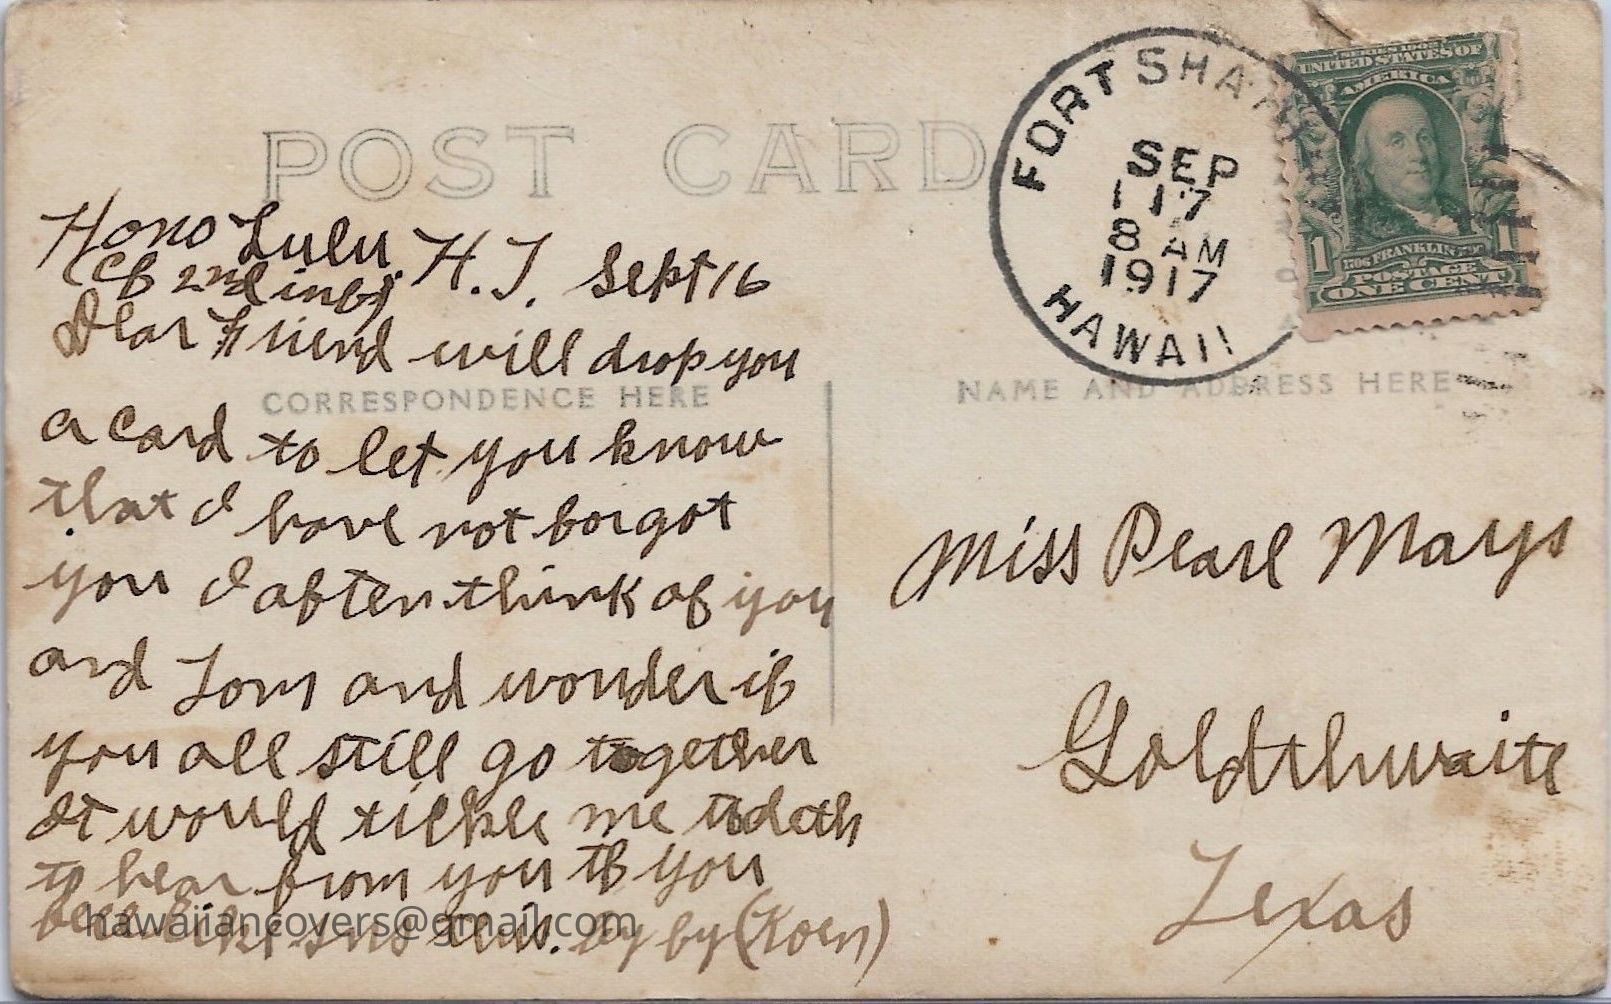 POST CARD
FORT SHA
SEP
17
8 AM
1917
HAWAII
SERIES 1902
UNITED STATES OF
AMERICA
1 1
BENJ. FRANKLIN
POSTAGE
ONE CENT
Hono Lulu. H.T. Sept 16
(Co 2nd inf)
Dear Friend will drop you
CORRESPONDENCE HERE
NAME AND ADDRESS HERE
a card to let you know
that I have not forgot
you I aften think of you
and Tom and wonder if
you all still go together
It would tickle me to deth
to hear from you if you
feel like by by (Koen)
hawaiiancovers@gmail.com
Miss Pearl Mays
Goldthwaite
Texas